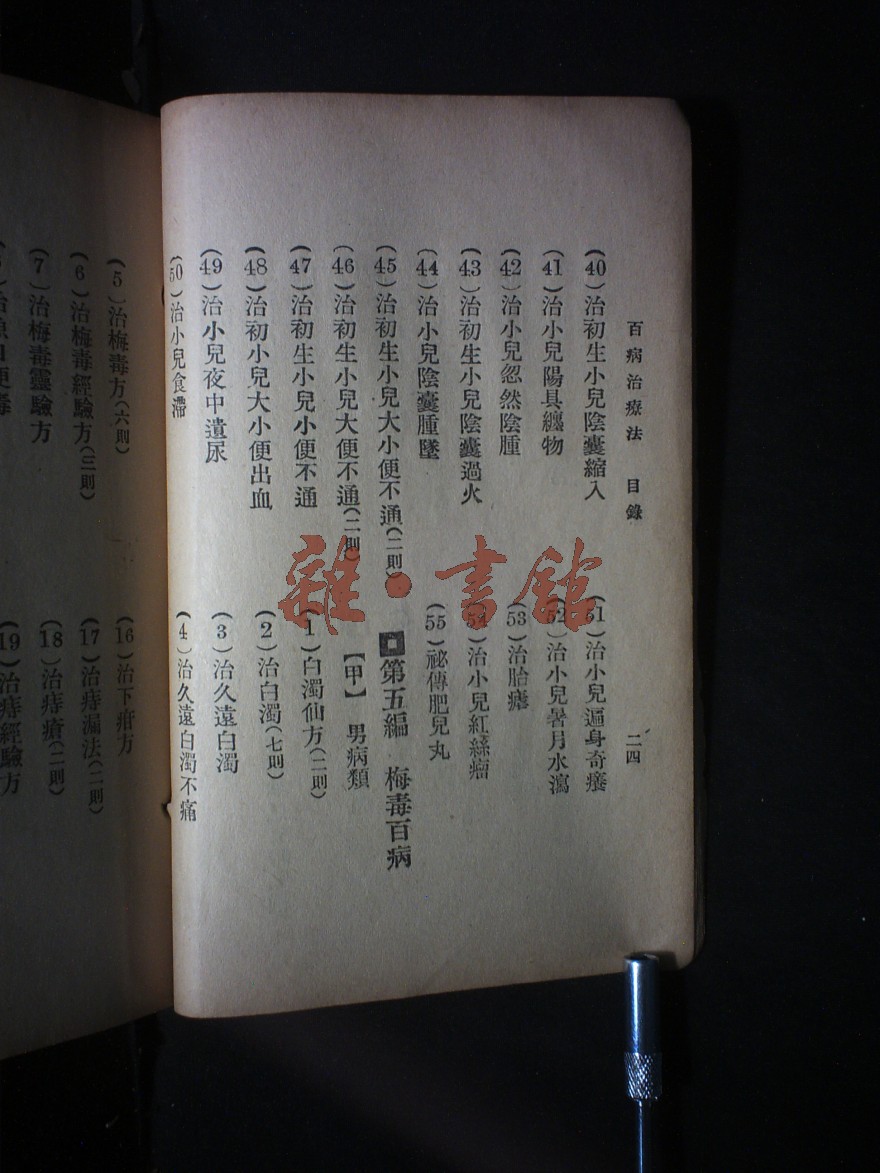 百病治療法　目錄
二四
(40)治初生小兒陰囊縮入
(41)治小兒陽具纏物
(42)治小兒忽然陰腫
(43)治初生小兒陰囊過火
(44)治小兒陰囊腫墜
(45)治初生小兒大小便不通(二則)
(46)治初生小兒大便不通(二則)
(47)治初生小兒小便不通
(48)治初小兒大小便出血
(49)治小兒夜中遺尿
(50)治小兒食滯
(51)治小兒遍身奇癢
(52)治小兒暑月水瀉
(53)治胎瘧
(54)治小兒紅絲瘤
(55)祕傳肥兒丸
第五編　梅毒百病
【甲】　男病類
(1)白濁仙方(二則)
(2)治白濁(七則)
(3)治久遠白濁
(4)治久遠白濁不痛
(5)治梅毒方(六則)
(6)治梅毒經驗方(三則)
(7)治梅毒靈驗方
(16)治下疳方
(17)治痔漏法(二則)
(18)治痔瘡(二則)
(19)治痔經驗方
雜·書館